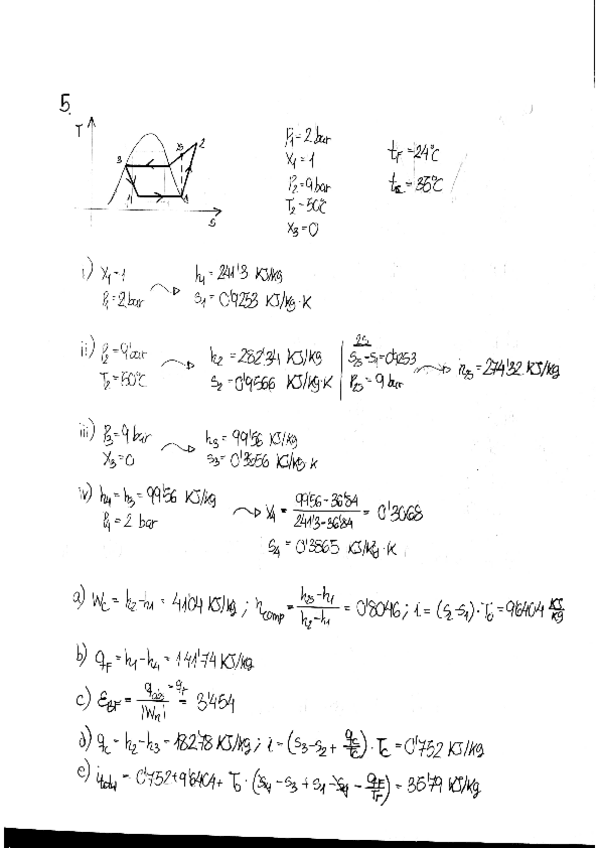 5.
T
3
2s
2
4
1
s
P₁=2 bar
X₁=1
P₂=9 bar
T₂=50ºC
X₃=0
t_F=24ºC
=35ºC
i) X₁=1
P₁=2 bar
h₁=241'3 KJ/kg
s₁=0'9253 KJ/kg·K
ii) P₂=9 bar
T₂=50ºC
h₂=282'34 KJ/kg
s₂=0'9566 KJ/kg·K
2s
P₂s=9 bar
h₂s=274'32 KJ/kg
iii) P₃=9 bar
X₃=0
h₃=99'56 KJ/kg
s₃=0'3656 KJ/kg·K
iv) h₄=h₃=99'56 KJ/kg
P₄=2 bar
X₄= (99'56-36'84)/(241'3-36'84) = 0'3068
s₄=0'3865 KJ/kg·K
a) W_c=h₂-h₁=41'04 KJ/kg; η_comp= (h₂s-h₁)/(h₂-h₁) =0'8046; i=(s₂-s₁)·T₀=9'6404 KJ/kg
b) q_F=h₁-h₄=141'74 KJ/kg
c) ε_BF= =3'454
d) q_c=h₂-h₃=182'78 KJ/kg; i=(s₃-s₂+ q_c/T_c)·T_c=0'752 KJ/kg
e) i_total=0'752+9'6404+T₀·(s₄-s₃+s₁-s₄- q_F/T_F)=35'79 KJ/kg